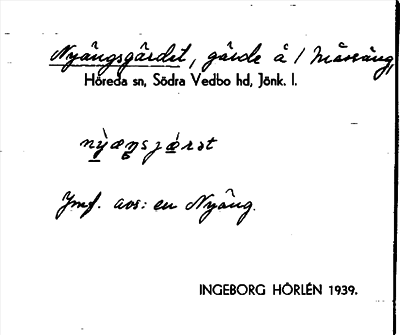 Nyängsgärdet, gärde å 1 Måssäng,
Höreda sn, Södra Vedbo hd, Jönk. l.
nỳæŋsjæ̀rət
Jmf. avs: en Nyäng.
INGEBORG HÖRLÉN 1939.